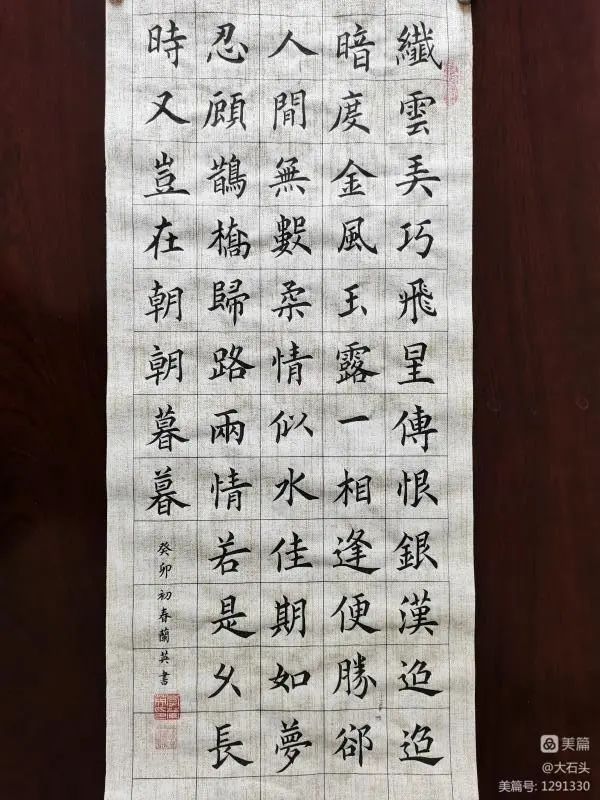 纖雲弄巧飛星傳恨銀漢迢迢
暗度金風玉露一相逢便勝卻
人間無數柔情似水佳期如夢
忍顧鵲橋歸路兩情若是久長
時又豈在朝朝暮暮
癸卯初春蘭英書
美篇
@大石头
美篇号: 1291330